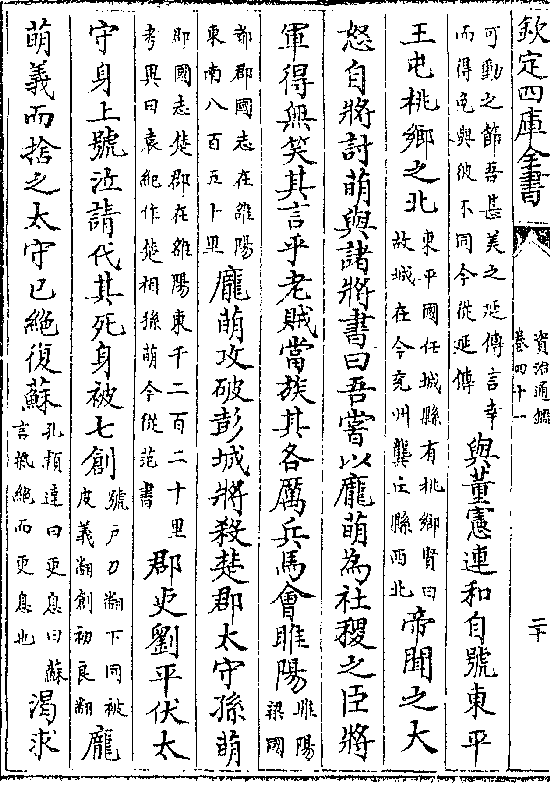 欽定四庫全書
資治通鑑
卷四十一
二十
可動之節吾甚美之延傳言幸
而得免與彼不同今從延傳
與董憲連和自號東平
王屯桃鄉之北
東平國任城縣有桃鄉賢曰
故城在今兗州龔丘縣西北
帝聞之大
怒自將討萌與諸將書曰吾嘗以龐萌為社稷之臣將
軍得無笑其言乎老賊當族其各厲兵馬會睢陽
睢陽
梁國
都郡國志在雒陽
東南八百五十里
龐萌攻破彭城將殺楚郡太守孫萌
郡國志楚郡在雒陽東千二百二十里
考異曰袁紀作楚相孫萌今從范書
郡吏劉平伏太
守身上號泣請代其死身被七創
號戶刀翻下同被
皮義翻創初良翻
龐
萌義而捨之太守已絶復蘇
孔穎達曰更息曰蘇
言氣絶而更息也
渴求